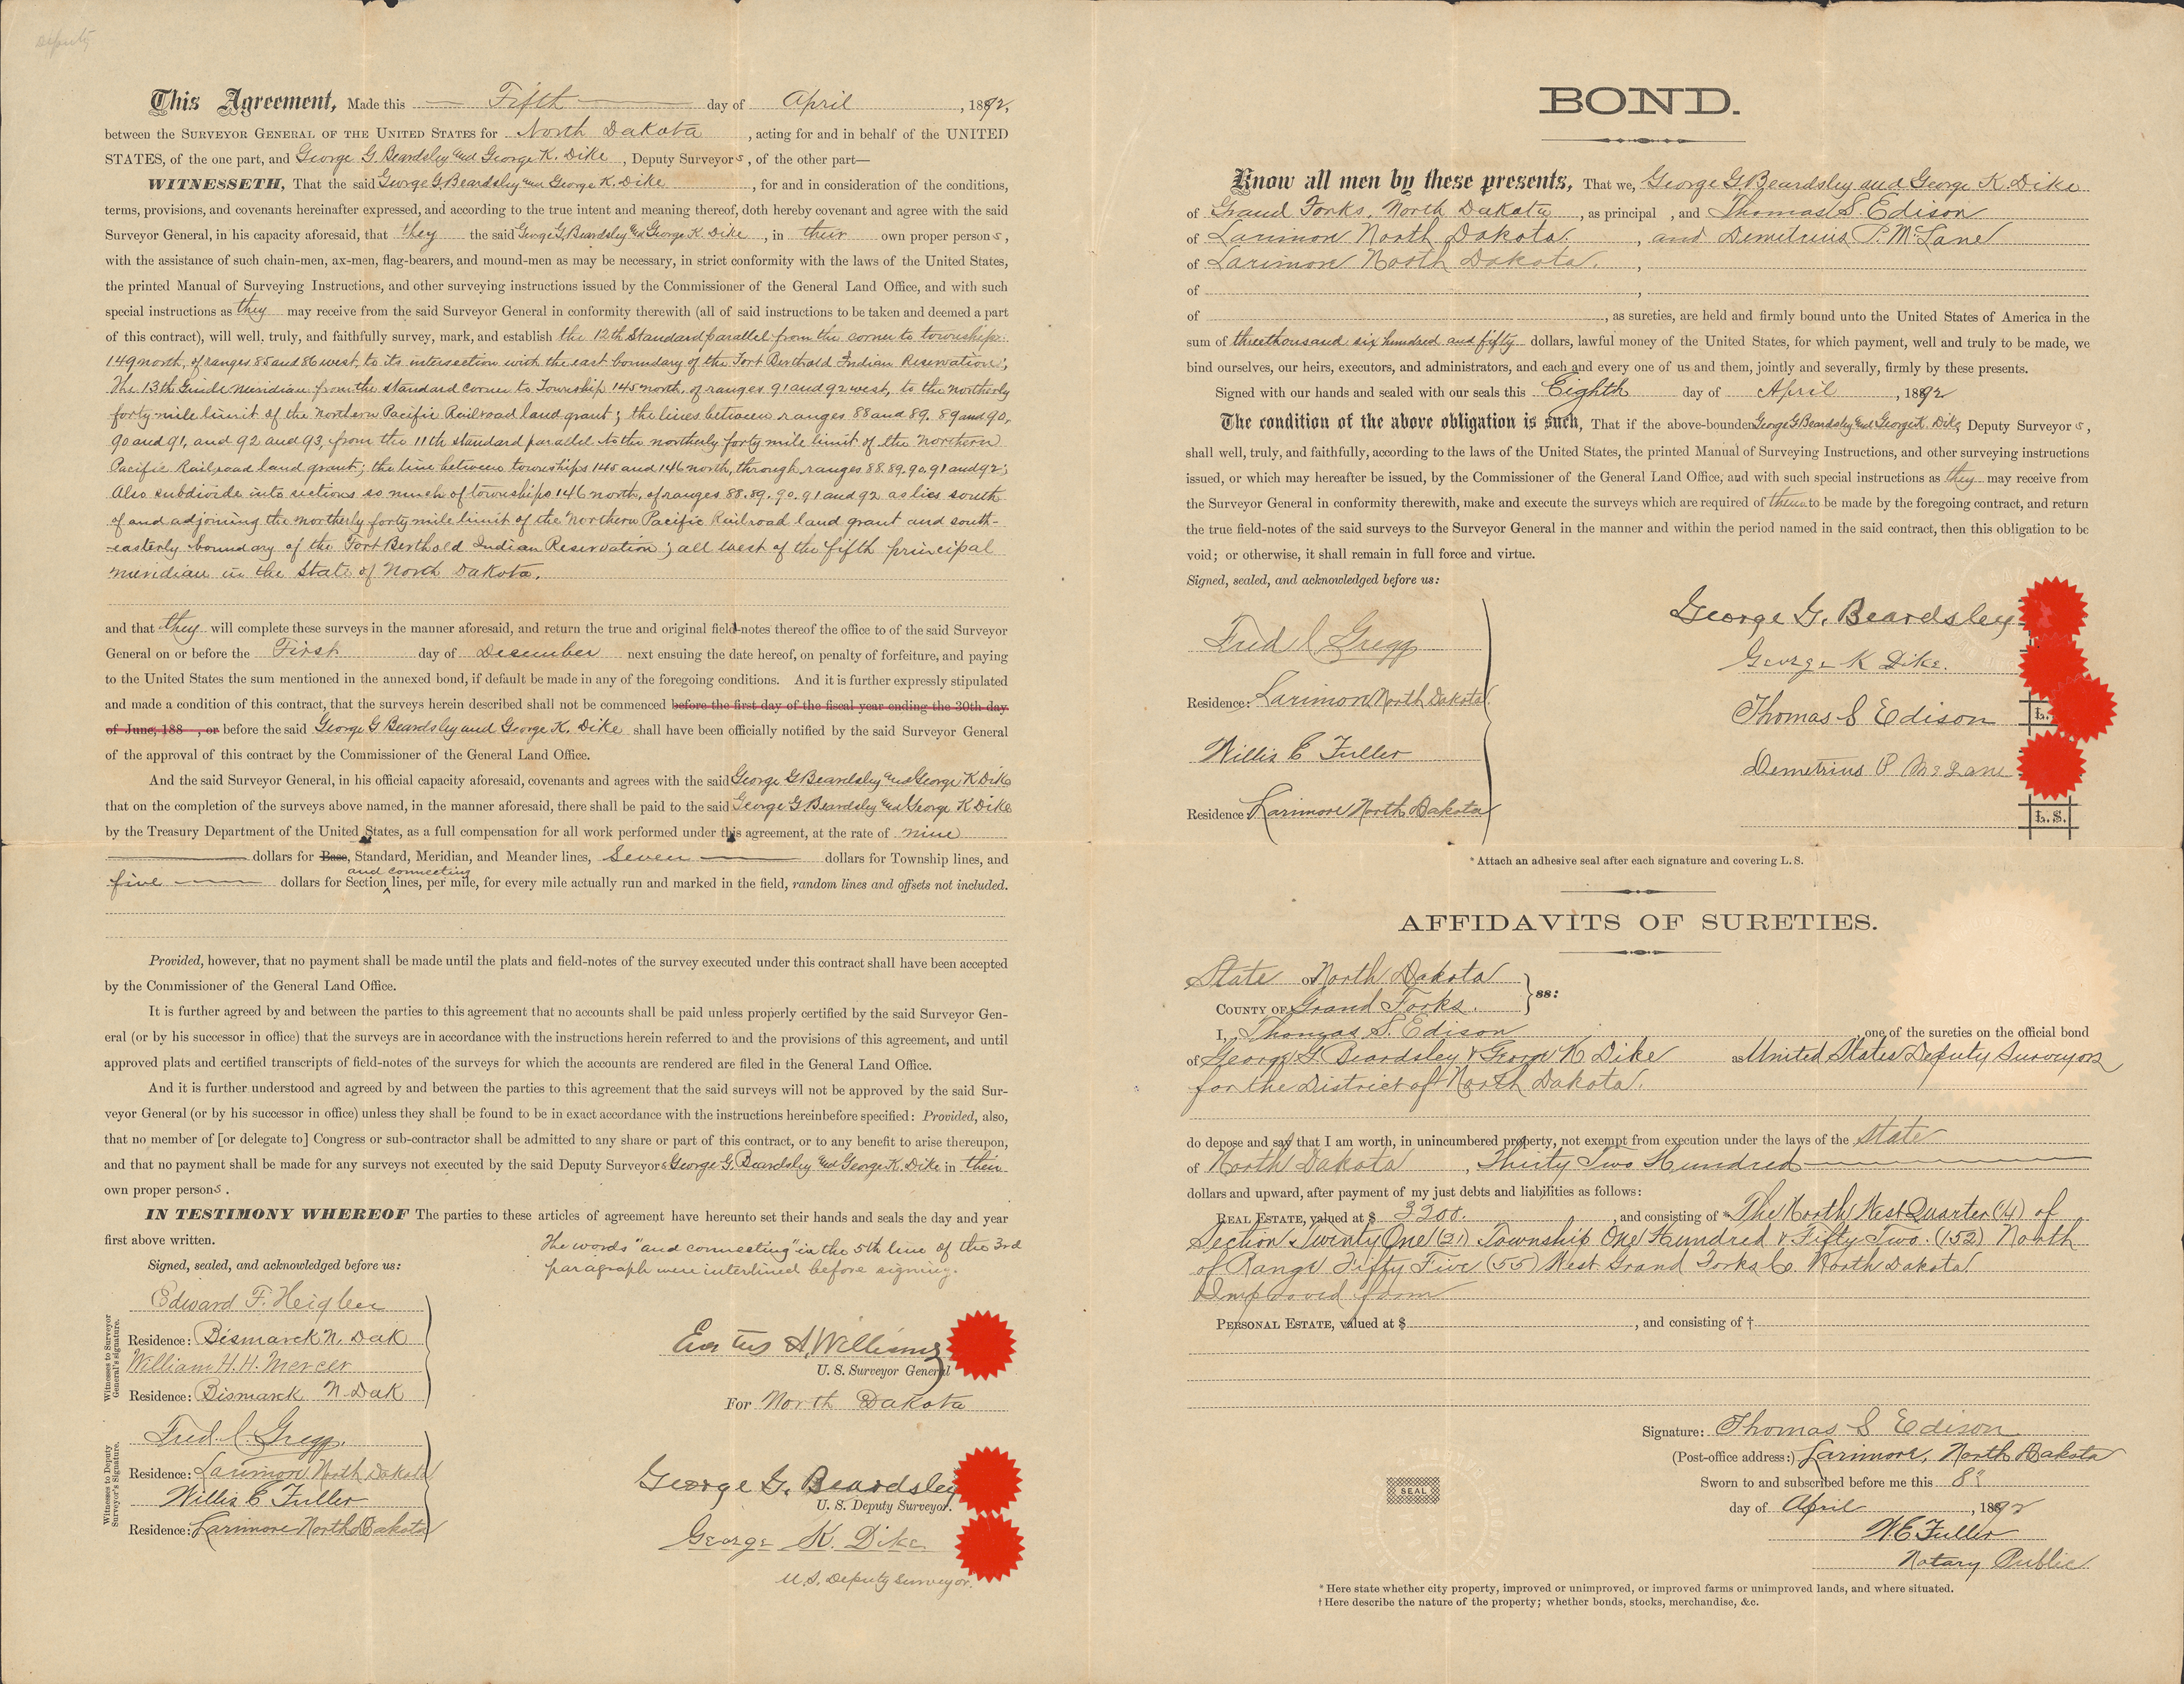 Deputy
This Agreement, Made this Fifth day of April, 1892,
between the SURVEYOR GENERAL OF THE UNITED STATES for North Dakota, acting for and in behalf of the UNITED
STATES, of the one part, and George G. Beardsley and George K. Dike, Deputy Surveyors, of the other part—
WITNESSETH, That the said George G Beardsley and George K. Dike, for and in consideration of the conditions,
terms, provisions, and covenants hereinafter expressed, and according to the true intent and meaning thereof, doth hereby covenant and agree with the said
Surveyor General, in his capacity aforesaid, that they the said George G Beardsley and George K. Dike, in their own proper persons,
with the assistance of such chain-men, ax-men, flag-bearers, and mound-men as may be necessary, in strict conformity with the laws of the United States,
the printed Manual of Surveying Instructions, and other surveying instructions issued by the Commissioner of the General Land Office, and with such
special instructions as they may receive from the said Surveyor General in conformity therewith (all of said instructions to be taken and deemed a part
of this contract), will well, truly, and faithfully survey, mark, and establish the 12th Standard parallel from the corner to townships
149 north, of ranges 85 and 86 west, to its intersection with the east boundary of the Fort Berthold Indian Reservation;
The 13th Guide Meridian from the standard corner to Township 145 north, of ranges 91 and 92 west, to the northerly
forty mile limit of the Northern Pacific Railroad land grant; the lines between ranges 88 and 89. 89 and 90,
90 and 91, and 92 and 93, from the 11th standard parallel to the northerly forty mile limit of the Northern
Pacific Railroad land grant; the line between townships 145 and 146 north, through ranges 88. 89. 90. 91 and 92;
Also subdivide into sections so much of townships 146 north, of ranges 88. 89. 90. 91 and 92 as lies south
of and adjoining the northerly forty mile limit of the Northern Pacific Railroad land grant and south-
easterly boundary of the Fort Berthold Indian Reservation; all West of the fifth principal
meridian in the State of North Dakota.
and that they will complete these surveys in the manner aforesaid, and return the true and original field-notes thereof the office to of the said Surveyor
General on or before the First day of December next ensuing the date hereof, on penalty of forfeiture, and paying
to the United States the sum mentioned in the annexed bond, if default be made in any of the foregoing conditions. And it is further expressly stipulated
and made a condition of this contract, that the surveys herein described shall not be commenced before the first day of the fiscal year ending the 30th day
of June, 188 , or before the said George G Beardsley and George K. Dike shall have been officially notified by the said Surveyor General
of the approval of this contract by the Commissioner of the General Land Office.
And the said Surveyor General, in his official capacity aforesaid, covenants and agrees with the said George G Beardsley and George K Dike
that on the completion of the surveys above named, in the manner aforesaid, there shall be paid to the said George G Beardsley and George K Dike
by the Treasury Department of the United States, as a full compensation for all work performed under this agreement, at the rate of nine
dollars for Base, Standard, Meridian, and Meander lines, Seven dollars for Township lines, and
and connecting
five dollars for Section lines, per mile, for every mile actually run and marked in the field, random lines and offsets not included.
Provided, however, that no payment shall be made until the plats and field-notes of the survey executed under this contract shall have been accepted
by the Commissioner of the General Land Office.
It is further agreed by and between the parties to this agreement that no accounts shall be paid unless properly certified by the said Surveyor Gen-
eral (or by his successor in office) that the surveys are in accordance with the instructions herein referred to and the provisions of this agreement, and until
approved plats and certified transcripts of field-notes of the surveys for which the accounts are rendered are filed in the General Land Office.
And it is further understood and agreed by and between the parties to this agreement that the said surveys will not be approved by the said Sur-
veyor General (or by his successor in office) unless they shall be found to be in exact accordance with the instructions hereinbefore specified: Provided, also,
that no member of [or delegate to] Congress or sub-contractor shall be admitted to any share or part of this contract, or to any benefit to arise thereupon,
and that no payment shall be made for any surveys not executed by the said Deputy Surveyors George G. Beardsley and George K. Dike in their
own proper persons.
IN TESTIMONY WHEREOF The parties to these articles of agreement have hereunto set their hands and seals the day and year
first above written.
The words "and connecting" in the 5th line of the 3rd
paragraph were interlined before signing.
Signed, sealed, and acknowledged before us:
Witnesses to Surveyor General's signature.
Edward F. Heigler
Residence: Bismarck N. Dak
William H. H. Mercer
Residence: Bismarck N. Dak
Erastus A. Williams
U. S. Surveyor General
For North Dakota
Witnesses to Deputy Surveyor's Signature.
Fred. C. Gregg.
Residence: Larimore North Dakota
Willis E Fuller
Residence: Larimore North Dakota
George G. Beardsley
U. S. Deputy Surveyor.
George K. Dike
U.S. Deputy Surveyor.
BOND.
Know all men by these presents, That we, George G. Beardsley and George K Dike
of Grand Forks, North Dakota, as principal , and Thomas S. Edison
of Larimore North Dakota, and Demetrius P. McLane
of Larimore North Dakota. ,
of ,
of , as sureties, are held and firmly bound unto the United States of America in the
sum of three thousand six hundred and fifty dollars, lawful money of the United States, for which payment, well and truly to be made, we
bind ourselves, our heirs, executors, and administrators, and each and every one of us and them, jointly and severally, firmly by these presents.
Signed with our hands and sealed with our seals this Eighth day of April, 1892
The condition of the above obligation is such, That if the above-bounden George G Beardsley and George K. Dike, Deputy Surveyors,
shall well, truly, and faithfully, according to the laws of the United States, the printed Manual of Surveying Instructions, and other surveying instructions
issued, or which may hereafter be issued, by the Commissioner of the General Land Office, and with such special instructions as they may receive from
the Surveyor General in conformity therewith, make and execute the surveys which are required of them to be made by the foregoing contract, and return
the true field-notes of the said surveys to the Surveyor General in the manner and within the period named in the said contract, then this obligation to be
void; or otherwise, it shall remain in full force and virtue.
Signed, sealed, and acknowledged before us:
Fred C Gregg
Residence: Larimore North Dakota
Willis E Fuller
Residence Larimore North Dakota
George G. Beardsley
George K Dike.
Thomas S Edison L.
Demetrius P McLane
L. S.
* Attach an adhesive seal after each signature and covering L. S.
AFFIDAVITS OF SURETIES.
State of North Dakota
COUNTY OF Grand Forks. ss:
I, Thomas S. Edison, one of the sureties on the official bond
of George G Beardsley & George K Dike as United States Deputy Surveyors
for the District of North Dakota.
do depose and say that I am worth, in unincumbered property, not exempt from execution under the laws of the State
of North Dakota, Thirty Two Hundred
dollars and upward, after payment of my just debts and liabilities as follows:
REAL ESTATE, valued at $ 3200. , and consisting of * The North West Quarter (¼) of
Section Twenty One (21) Township One Hundred & Fifty Two. (152) North
of Range Fifty Five (55) West Grand Forks Co. North Dakota
Improved farm
PERSONAL ESTATE, valued at $ , and consisting of †
Signature: Thomas S Edison
(Post-office address:) Larimore, North Dakota
Sworn to and subscribed before me this 8th
day of April, 1892
W. E. Fuller
Notary Public
SEAL
* Here state whether city property, improved or unimproved, or improved farms or unimproved lands, and where situated.
† Here describe the nature of the property; whether bonds, stocks, merchandise, &c.